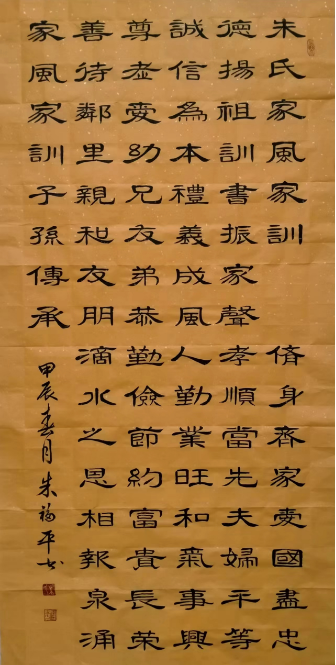 朱氏家風家訓 脩身齊家愛國盡忠
德揚祖訓書振家聲孝順當先夫婦平等
誠信為本禮義成風人勤業旺和氣事興
尊老愛幼兄友弟恭勤儉節約富貴長榮
善待鄰里親和友朋滴水之恩相報泉涌
家風家訓子孫傳承
甲辰春月朱福平书